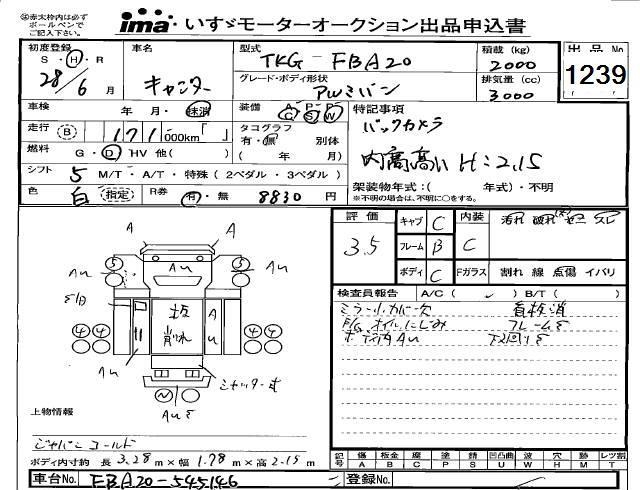 ㊟赤太枠内は必ず
ボールペンで
ご記入ください。
ima いすゞモーターオークション出品申込書
初度登録 S・H・R 28年 6月
車名 キャンター
型式 TKG - FBA20
グレード・ボディ形状 アルミバン
積載 (kg) 2000
排気量 (cc) 3000
出品No 1239
車検 年・月・抹消
装備 A/C P/S P/W
特記事項
バックカメラ
内高高い H:2.15
走行 B 171,000km「 」
タコグラフ 有・無 別体
( 年 月)
燃料 G・D・HV 他( )
シフト 5 M/T・A/T・特殊 (2ペダル・3ペダル)
架装物年式:( 年式)・不明
※不明の場合は、不明に○をする。
色 白 (指定)
R券 有・無 8830 円
評価 3.5
キャブ C
フレーム B
ボディ C
内装 C
汚れ 破れ コゲ スレ
Fガラス 割れ 線 点傷 イバリ
検査員報告 A/C ( ✓ ) B/T ( )
看板消
フレームE
下回りE
ボデ内 AU
A A
5 5
AU AU AU
4 4 4 4
板
AU AU
シャッター式
N
AUE
上物情報
ボディ内寸約 長 3.28m×幅 1.78m×高 2.15m
記号 傷A 板金B 腐C 塗P 錆S 凹凸曲U 波W 穴H 跡M レツ割T
車台No. FBA20-545146
登録No.